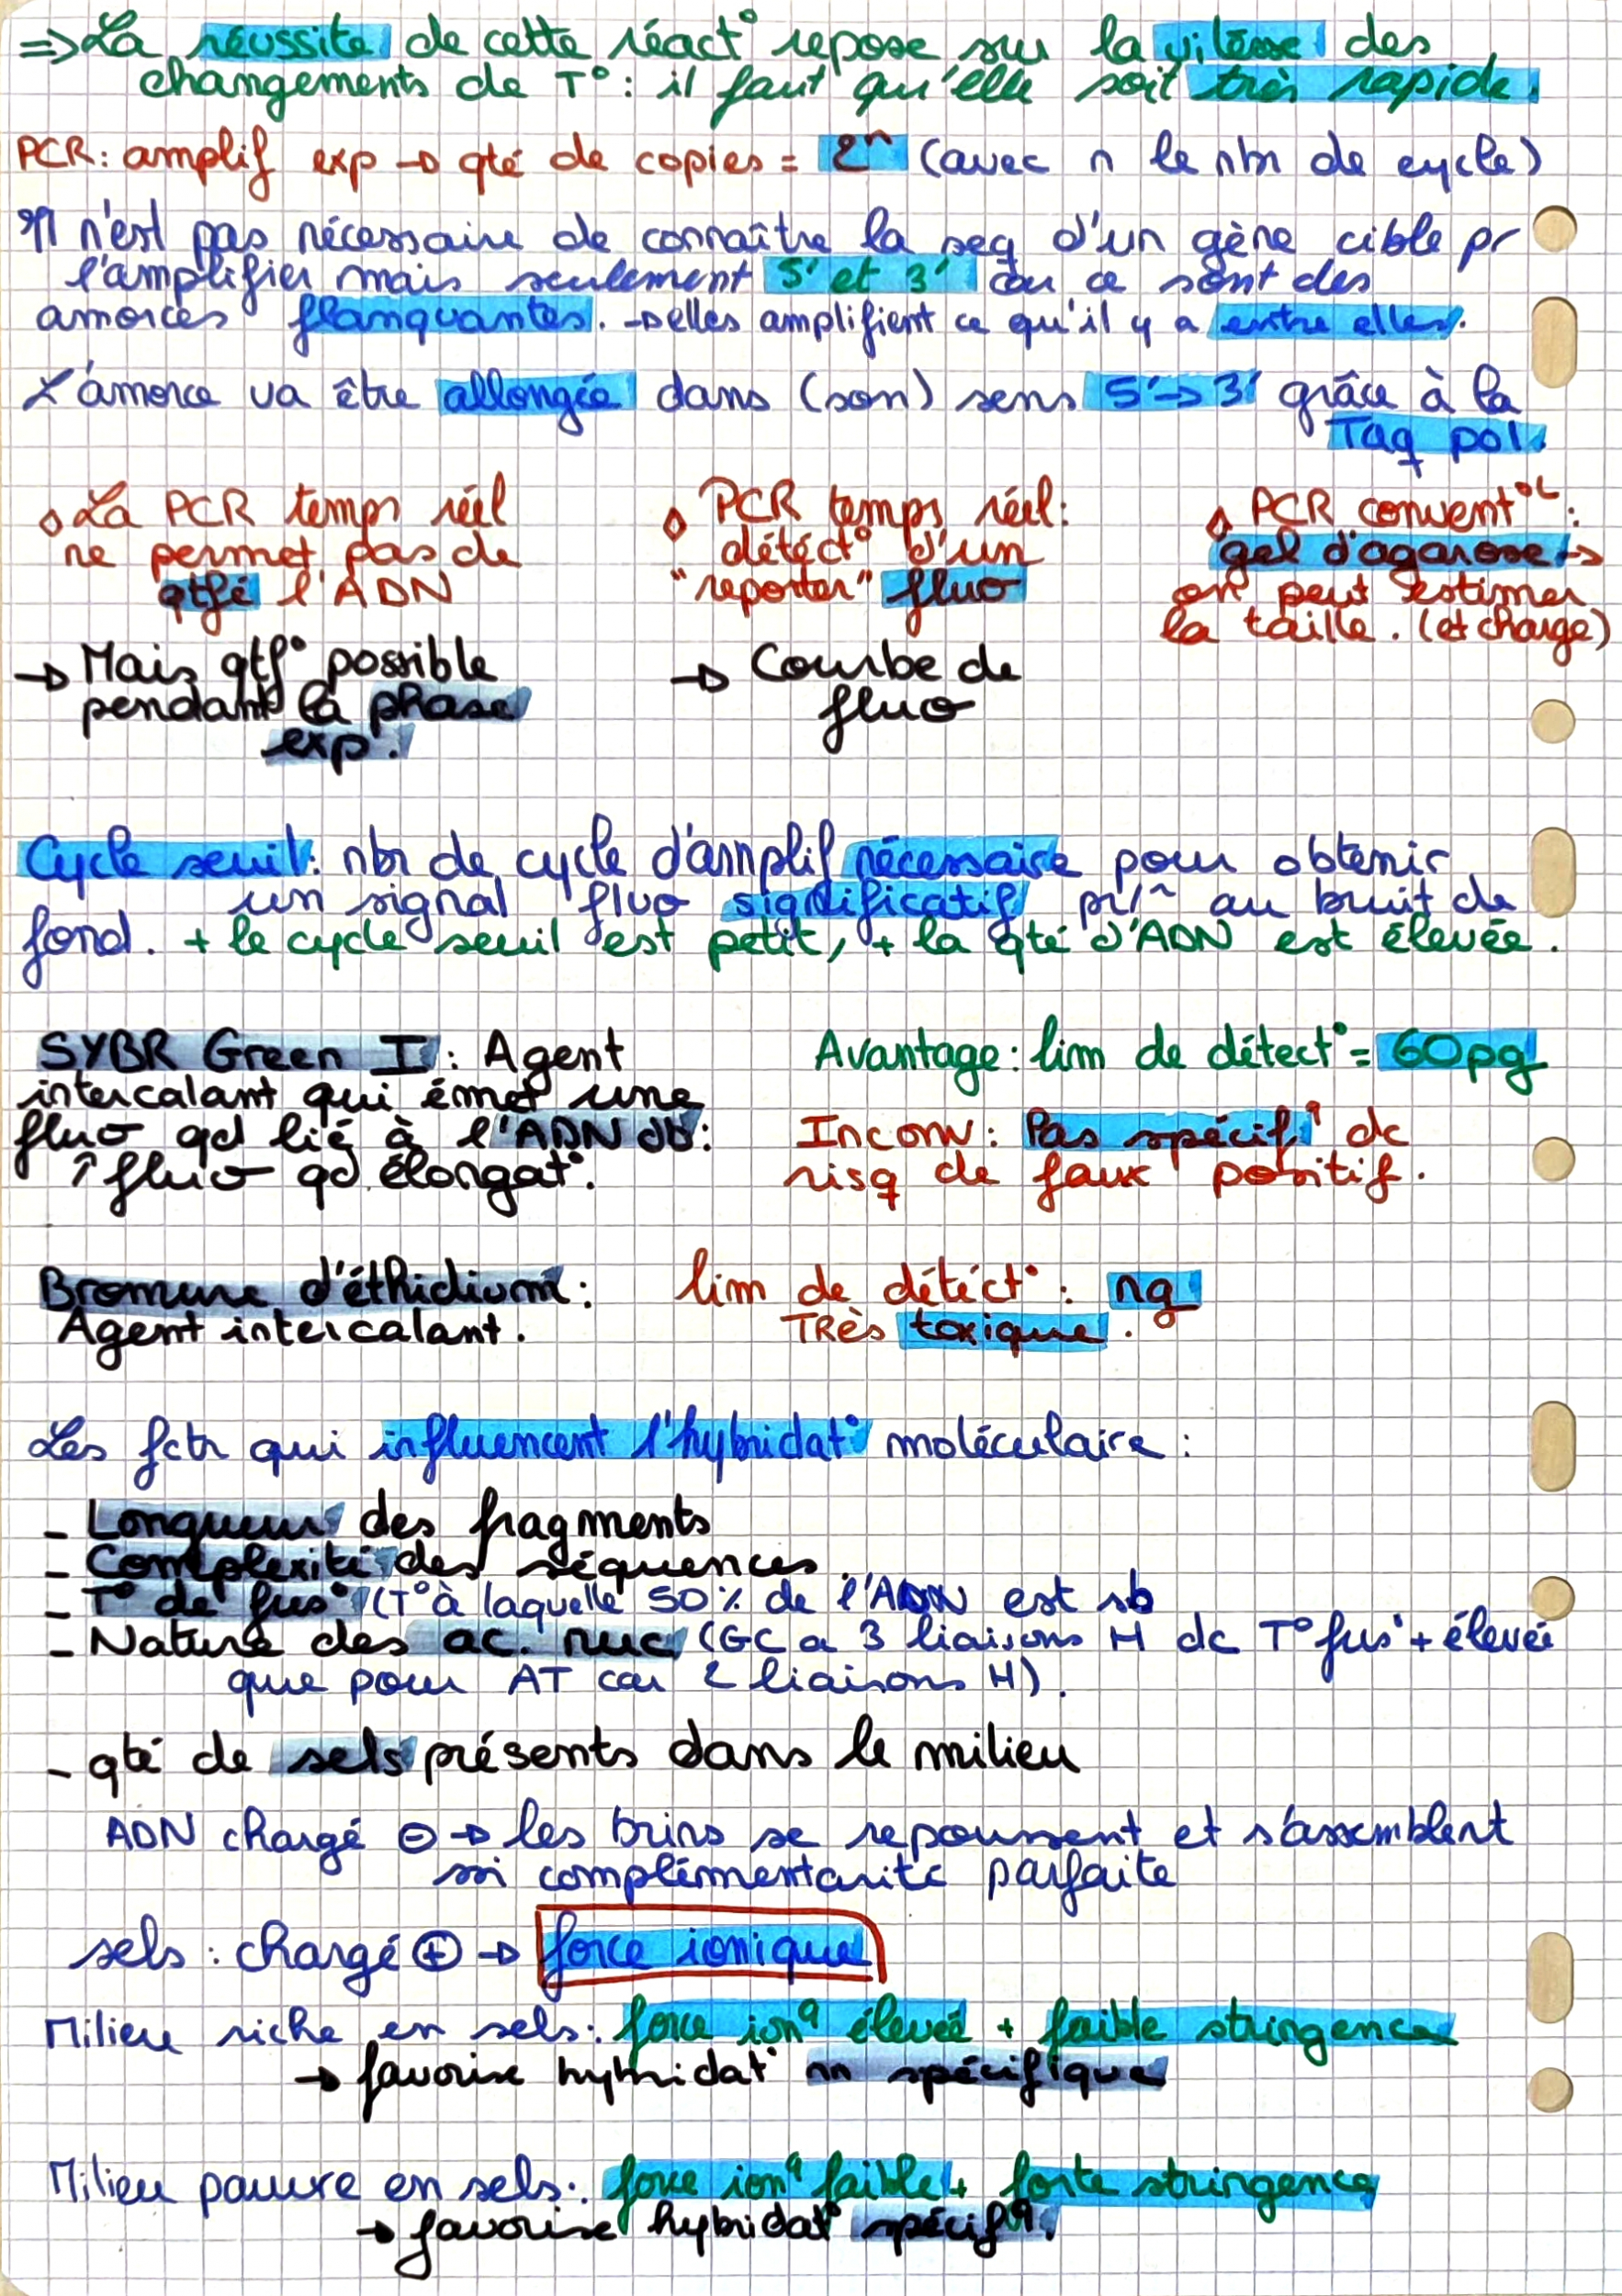 ⇒ La réussite de cette réact° repose sur la vitesse des
changements de T° : il faut qu'elle soit très rapide.
PCR : amplif exp → qté de copies = 2ⁿ (avec n le nbr de cycle)
Il n'est pas nécessaire de connaître la seq d'un gène cible pr
l'amplifier mais seulement 5' et 3' car ce sont des
amorces flanquantes. → elles amplifient ce qu'il y a entre elles.
L'amorce va être allongée dans (son) sens 5' → 3' grâce à la
Taq pol.
◊ La PCR temps réel
ne permet pas de
qtfé l'ADN
→ Mais qtf° possible
pendant la phase
exp.
◊ PCR temps réel :
détéct° d'un
"reporter" fluo
→ Courbe de
fluo
◊ PCR convent°L :
gel d'agarose →
on peut estimer
la taille. (et charge)
Cycle seuil : nbr de cycle d'amplif nécessaire pour obtenir
un signal fluo significatif pr/^ au bruit de
fond. + le cycle seuil est petit, + la qté d'ADN est élevée.
SYBR Green I : Agent
intercalant qui émet une
fluo qd lié à l'ADN db :
↑ fluo qd élongat°.
Avantage : lim de détect° = 60pg
Inconv : Pas spécifq dc
risq de faux positif.
Bromure d'éthidium :
Agent intercalant.
lim de détéct° : ng
TRès toxique.
Les fctr qui influencent l'hybridat° moléculaire :
- Longueur des fragments
- Complexité des séquences.
- T° de fus° (T° à laquelle 50% de l'ADN est sb
- Nature des ac. nuc (GC a 3 liaisons H dc T° fus° + élevée
que pour AT car 2 liaisons H).
- qté de sels présents dans le milieu
ADN chargé ⊖ → les brins se repoussent et s'assemblent
si complémentarité parfaite
sels : chargé ⊕ → force ionique
Milieu riche en sels : force ionq élevée + faible stringence
→ favorise hybridat° nn spécifique
Milieu pauvre en sels : force ionq faible + forte stringence
→ favorise hybridat° spécifq.